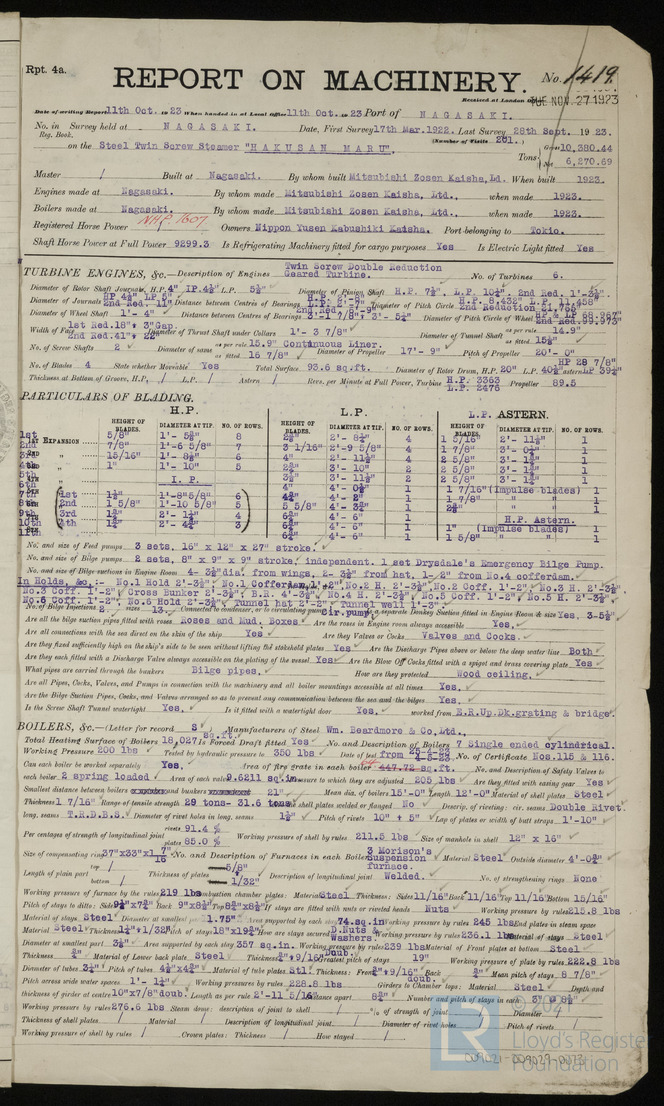 Rpt. 4a.
REPORT ON MACHINERY.
No. 1419
Received at London Office TUE NOV 27 1923
Date of writing Report 11th Oct. 1923 When handed in at Local Office 11th Oct. 1923 Port of NAGASAKI.
No. in Survey held at NAGASAKI. Date, First Survey 17th Mar. 1922. Last Survey 28th Sept. 1923.
Reg. Book. (Number of Visits 261.)
on the Steel Twin Screw Steamer "HAKUSAN MARU". Tons Gross 10,380.44
Net 6,270.69
Master / Built at Nagasaki. By whom built Mitsubishi Zosen Kaisha, Ld. When built 1923.
Engines made at Nagasaki. By whom made Mitsubishi Zosen Kaisha, Ltd., when made 1923.
Boilers made at Nagasaki. By whom made Mitsubishi Zosen Kaisha, Ltd., when made 1923.
Registered Horse Power NHP 1607 Owners Nippon Yusen Kabushiki Kaisha. Port belonging to Tokio.
Shaft Horse Power at Full Power 9299.3 Is Refrigerating Machinery fitted for cargo purposes Yes Is Electric Light fitted Yes
TURBINE ENGINES, &c.—Description of Engines Twin Screw Double Reduction Geared Turbine. No. of Turbines 6.
Diameter of Rotor Shaft Journals, H.P. 4" IP. 4½" L.P. 5½" Diameter of Pinion Shaft H.P. 7½" L.P. 10½". 2nd Red. 1'-3½"
Diameter of Journals Distance between Centres of Bearings Diameter of Pitch Circle
Diameter of Wheel Shaft 1'- 4" Distance between Centres of Bearings Diameter of Pitch Circle of Wheel
Width of Face 1st Red. 18" + 3" Gap. Diameter of Thrust Shaft under Collars 1'- 3 7/8" Diameter of Tunnel Shaft as per rule 14.9"
No. of Screw Shafts 2 Diameter of same as per rule 15.9" Continuous Liner. as fitted 16 7/8" Diameter of Propeller 17'- 9" Pitch of Propeller 20'- 0"
No. of Blades 4 State whether Moveable Yes Total Surface 93.6 sq.ft. Diameter of Rotor Drum, H.P. 20" L.P. 40½" astern
Thickness at Bottom of Groove, H.P. / L.P. / Astern / Revs. per Minute at Full Power, Turbine H.P. 3363 L.P. 2476 Propeller 89.5
PARTICULARS OF BLADING.
H.P. L.P. L.P. ASTERN.
HEIGHT OF BLADES. DIAMETER AT TIP. NO. OF ROWS. HEIGHT OF BLADES. DIAMETER AT TIP. NO. OF ROWS. HEIGHT OF BLADES. DIAMETER AT TIP. NO. OF ROWS.
1st EXPANSION 5/8" 8 4 1 5/16" 2'- 11½" 1
2nd 7/8" 1'-6 5/8" 7 3 1/16" 2'-9 5/8" 4 1 7/8" 1
3rd 15/16" 6 4 2 5/8" 1
1" 1'- 10" 5 3'- 10" 2 2 5/8" 1
I. P.
1st 1'-8"5/8" 6 1 7/16" (Impulse blades) 1
2nd 1 5/8" 1'-10 5/8" 5 1 7/8" 1
3rd 4 5 5/8" 1
4th 3 H.P. Astern.
1" (Impulse blades) 1
1 5/8" 1
No. and size of Feed pumps 3 sets, 16" x 12" x 27" stroke.
No. and size of Bilge pumps 2 sets, 8" x 9" x 9" stroke, independent. 1 set Drysdale's Emergency Bilge Pump.
No. and size of Bilge suctions in Engine Room 4- 3½"dia. from wings, 2- 3½" from hat, 1- 2" from No.4 cofferdam.
In Holds, &c. :- No.1 Hold 2'-3½", No.1 Cofferdam, No.2 H. 2'-3½", No.2 Coff. 1'-2", No.3 H. 2'-3½",
No.3 Coff. 1'-2", Cross Bunker 2'-3½", B.R. 4'-3½", No.4 H. 2'-3½", No.5 Coff. 1'-2", No.5 H. 2'-3½",
No.6 Coff. 1'-2", No.6 Hold 2'-3½", Tunnel hat 2'-2", Tunnel well 1'-3".
No. of Bilge Injections 2 sizes 13" Connected to condenser, or to circulating pump Cir. pump. Is a separate Donkey Suction fitted in Engine Room & size Yes, 3-5½"
Are all the bilge suction pipes fitted with roses Roses and Mud, Boxes Are the roses in Engine room always accessible Yes.
Are all connections with the sea direct on the skin of the ship Yes Are they Valves or Cocks Valves and Cocks.
Are they fixed sufficiently high on the ship's side to be seen without lifting the stokehold plates Yes Are the Discharge Pipes above or below the deep water line Both
Are they each fitted with a Discharge Valve always accessible on the plating of the vessel Yes Are the Blow Off Cocks fitted with a spigot and brass covering plate Yes
What pipes are carried through the bunkers Bilge pipes. How are they protected Wood ceiling.
Are all Pipes, Cocks, Valves, and Pumps in connection with the machinery and all boiler mountings accessible at all times Yes.
Are the Bilge Suction Pipes, Cocks, and Valves arranged so as to prevent any communication between the sea and the bilges Yes.
Is the Screw Shaft Tunnel watertight Yes. Is it fitted with a watertight door Yes. worked from E.R. Up. Dk. grating & bridge.
BOILERS, &c.—(Letter for record S) Manufacturers of Steel Wm. Beardmore & Co, Ltd.,
Total Heating Surface of Boilers 18,027 sq.ft. Is Forced Draft fitted Yes No. and Description of Boilers 7 Single ended cylindrical.
Working Pressure 200 lbs Tested by hydraulic pressure to 350 lbs Date of test from No. of Certificate Nos. 115 & 116.
Can each boiler be worked separately Yes, Area of fire grate in each boiler 447.72 sq.ft. No. and Description of Safety Valves to
each boiler 2 spring loaded Area of each valve 9.6211 sq.in. Pressure to which they are adjusted 205 lbs Are they fitted with easing gear Yes
Smallest distance between boilers and bunkers 21" Mean dia. of boilers 15'-0" Length 12'-0" Material of shell plates Steel
Thickness 1 7/16" Range of tensile strength 29 tons- 31.6 tons Are the shell plates welded or flanged No Descrip. of riveting: cir. seams Double Rivet.
long. seams T.R.D.B.S. Diameter of rivet holes in long. seams 1½" Pitch of rivets 10" + 5" Lap of plates or width of butt straps 1'-10"
Per centages of strength of longitudinal joint rivets 91.4 % plates 85.0 % Working pressure of shell by rules 211.5 lbs Size of manhole in shell 12" x 16"
Size of compensating ring 37"x33"x1 7/16" No. and Description of Furnaces in each Boiler 3 Morison's Suspension furnace. Material Steel Outside diameter
Length of plain part top / bottom / Thickness of plates 5/8" 1/32" Description of longitudinal joint Welded. No. of strengthening rings None
Working pressure of furnace by the rules 219 lbs Combustion chamber plates: Material Steel. Thickness: Sides 11/16" Back 11/16" Top 11/16" Bottom 15/16"
Pitch of stays to ditto: Sides Back Top If stays are fitted with nuts or riveted heads Nuts Working pressure by rules 215.8 lbs
Material of stays Steel Diameter at smallest part 1.75" Area supported by each stay 74 sq.in Working pressure by rules 245 lbs End plates in steam space
Material Steel Thickness Pitch of stays How are stays secured D.Nuts & Washers. Working pressure by rules 236.1 lbs Material of stays Steel
Diameter at smallest part 3½" Area supported by each stay 357 sq.in. Working pressure by rules 239 lbs Material of Front plates at bottom Steel
Thickness Material of Lower back plate Steel Thickness Greatest pitch of stays 19" Working pressure of plate by rules 222.8 lbs
Diameter of tubes 3½" Pitch of tubes Material of tube plates Stl. Thickness: Front Back Mean pitch of stays 8 7/8"
Pitch across wide water spaces Working pressures by rules 228.8 lbs Girders to Chamber tops: Material Steel Depth and
thickness of girder at centre 10"x7/8" doub. Length as per rule 2'-11 5/16" Distance apart Number and pitch of stays in each
Working pressure by rules 276.6 lbs Steam dome: description of joint to shell / % of strength of joint / Diameter
Thickness of shell plates / Material / Description of longitudinal joint / Diameter of rivet holes / Pitch of rivets /
Working pressure of shell by rules / Crown plates: Thickness / How stayed /
© 2021
LR
Lloyd's Register
Foundation